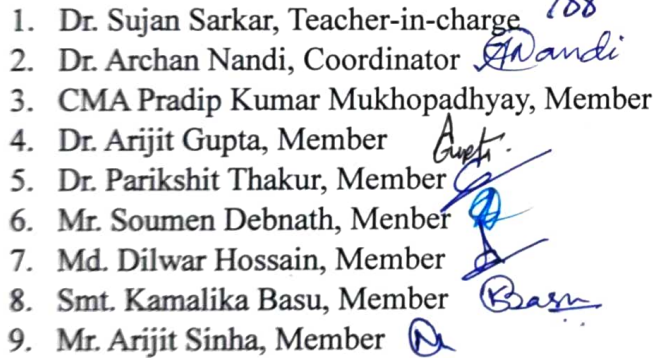 1. Dr. Sujan Sarkar, Teacher-in-charge
2. Dr. Archan Nandi, Coordinator ANandi
3. CMA Pradip Kumar Mukhopadhyay, Member
4. Dr. Arijit Gupta, Member A Gupta.
5. Dr. Parikshit Thakur, Member
6. Mr. Soumen Debnath, Menber
7. Md. Dilwar Hossain, Member
8. Smt. Kamalika Basu, Member KBasu
9. Mr. Arijit Sinha, Member